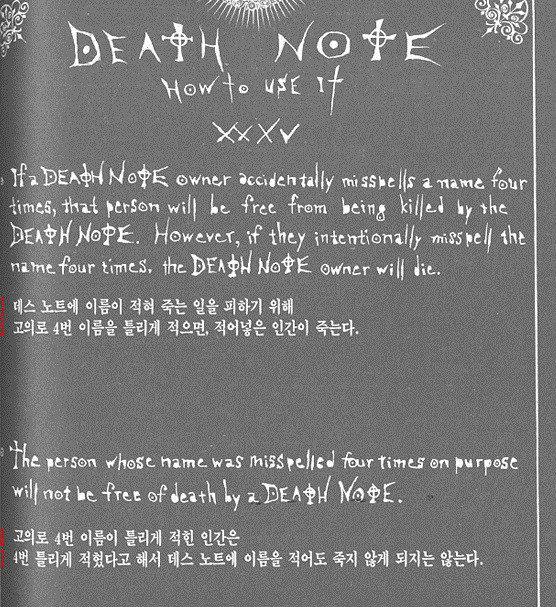 DEATH NOTE
HOW TO USE IT
XXXV
If a DEATH NOTE owner accidentally misspells a name four
times, that person will be free from being killed by the
DEATH NOTE. However, if they intentionally misspell the
name four times, the DEATH NOTE owner will die.
데스 노트에 이름이 적혀 죽는 일을 피하기 위해
고의로 4번 이름을 틀리게 적으면, 적어넣은 인간이 죽는다.
The person whose name was misspelled four times on purpose
will not be free of death by a DEATH NOTE.
고의로 4번 이름이 틀리게 적힌 인간은
4번 틀리게 적혔다고 해서 데스 노트에 이름을 적어도 죽지 않게 되지는 않는다.